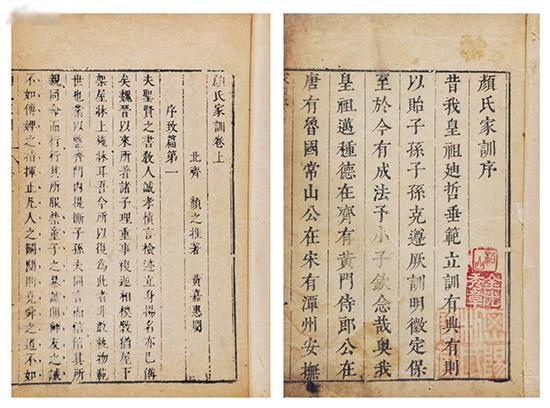 顏氏家訓序
昔我皇祖廸哲垂範立訓有典有則
以貽子孫子孫克遵厥訓明徵定保
至於今有成法予小子欽念哉奧我
皇祖邁種德在齊有黃門侍郎公在
唐有魯國常山公在宋有潭州安撫
顏氏家訓卷上
北齊 顏之推著 黃嘉惠閱
序致篇第一
夫聖賢之書教人誠孝慎言檢迹立身揚名亦已備
矣魏晉以來所著諸子理重事複遞相模斆猶屋下
架屋牀上施牀耳吾今所以復為此者非敢軌物範
世也業以整齊門內提撕子孫夫同言而信信其所
親同命而行行其所服禁童子之暴謔則師友之誡
不如傅婢之指揮止凡人之鬬鬩則堯舜之道不如